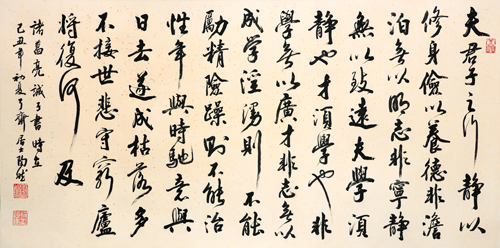 夫君子之行静以
修身儉以養德非澹
泊無以明志非寧静
無以致遠夫學須
静也才須學也非
學無以廣才非志無以
成学淫漫則不能
勵精險躁則不能治
性年與時馳意與
日去遂成枯落多
不接世悲守窮廬
將復何及
諸葛亮誡子書時在
己丑年初夏